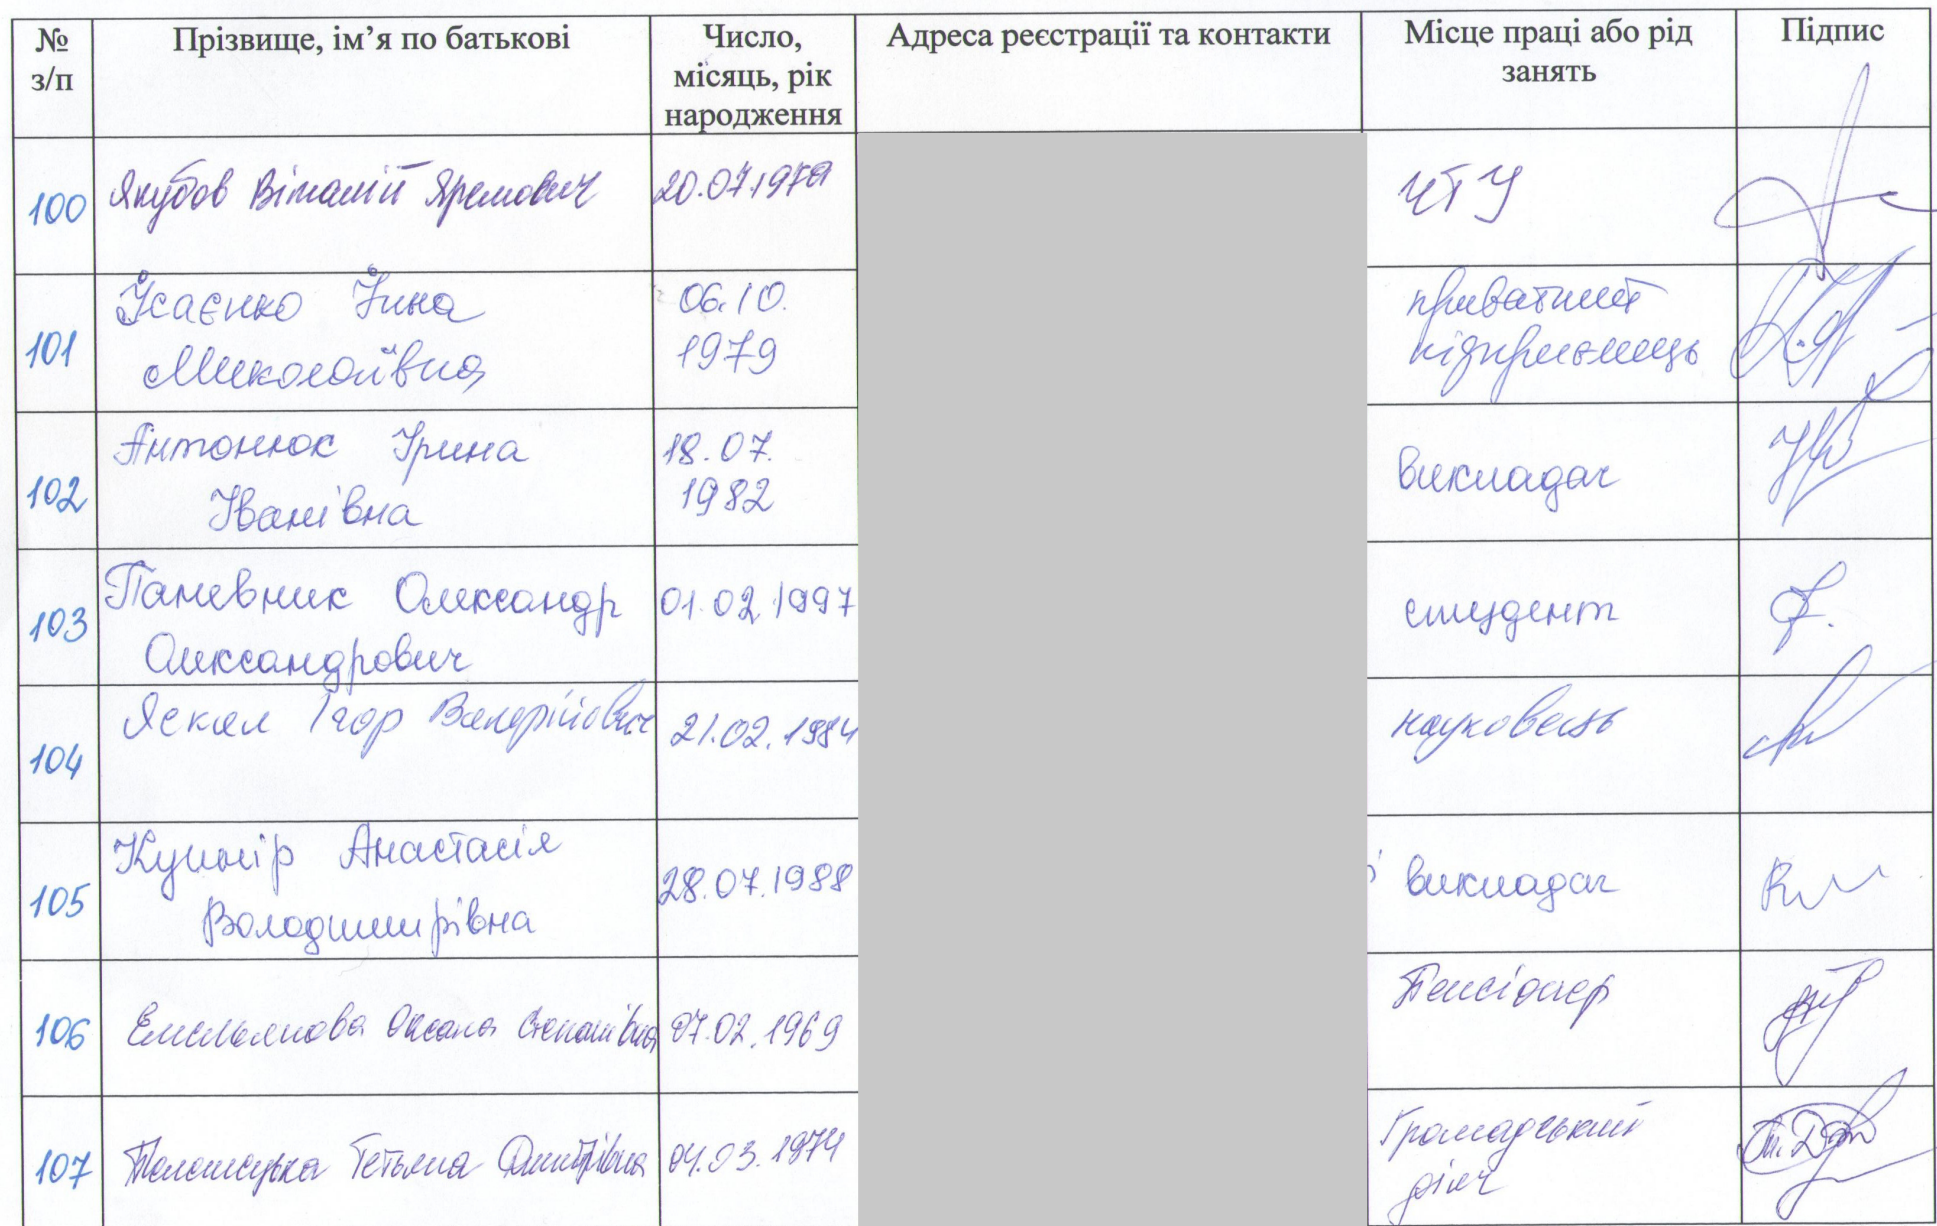 № з/п Прізвище, ім’я по батькові Число, місяць, рік народження Адреса реєстрації та контакти Місце праці або рід занять Підпис
100 Якубов Віталій Яремович 20.07.1979 ЧТУ
101 Ісаєнко Інна Миколаївна 06.10.1979 приватний підприємець
102 Антонюк Ірина Іванівна 18.07.1982 викладач
103 Паневник Олександр Олександрович 01.02.1997 студент
104 Яскал Ігор Валерійович 21.02.1984 науковець
105 Кушнір Анастасія Володимирівна 28.07.1988 викладач
106 Емельянова Оксана Степанівна 07.02.1969 Пенсіонер
107 Тетьяна Дмитрівна 04.03.1974 Громадський діяч